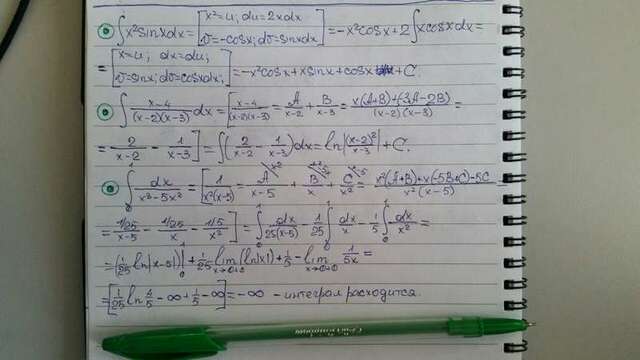 ∫x²sinxdx = [x²=u; du=2xdx v=-cosx; dv=sinxdx] = -x²cosx+2∫xcosxdx =
= [x=u; dx=du; v=sinx; dv=cosxdx;] = -x²cosx+xsinx+cosx +C.
∫(x-4)/((x-2)(x-3))dx = [(x-4)/((x-2)(x-3)) = A/(x-2) + B/(x-3) = (x(A+B)+(-3A-2B))/((x-2)(x-3)) =
= 2/(x-2) - 1/(x-3)] = ∫(2/(x-2) - 1/(x-3))dx = ln|(x-2)²/(x-3)| + C.
∫₀¹dx/(x³-5x²) = [1/(x²(x-5)) = A/(x-5) + B/x + C/x² = (x²(A+B)+x(-5B+C)-5C)/(x²(x-5))
= (1/25)/(x-5) - (1/25)/x - (1/5)/x²] = ∫₀¹dx/(25(x-5)) - 1/25∫₀¹dx/x - 1/5∫₀¹dx/x² =
= (1/25 ln|x-5|)|₀¹ + 1/25 lim x→0+0 (ln|x|) + 1/5 - lim x→0+0 1/5x =
= [1/25 ln 4/5 - ∞ + 1/5 - ∞] = -∞ - интеграл расходится.